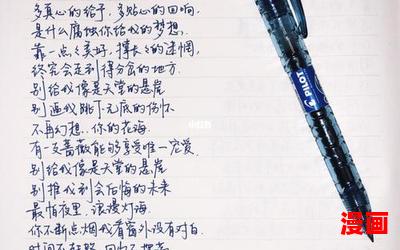 多真心的给予，多贴心的回响，
是什么腐蚀你给我的梦想，
靠一点点美好，撑长长的迷惘，
终究会走到得分岔的地方。
别给我像是天堂的悬崖
别逼我跳下无底的伤怀
不再幻想、你的花海
有一支蔷薇能够享受唯一宠爱
别给我像是天堂的悬崖
别推我到会后悔的未来
最怕夜里，浪漫灯海
你不断点烟我看窗外没有对白
PILOT
漫画